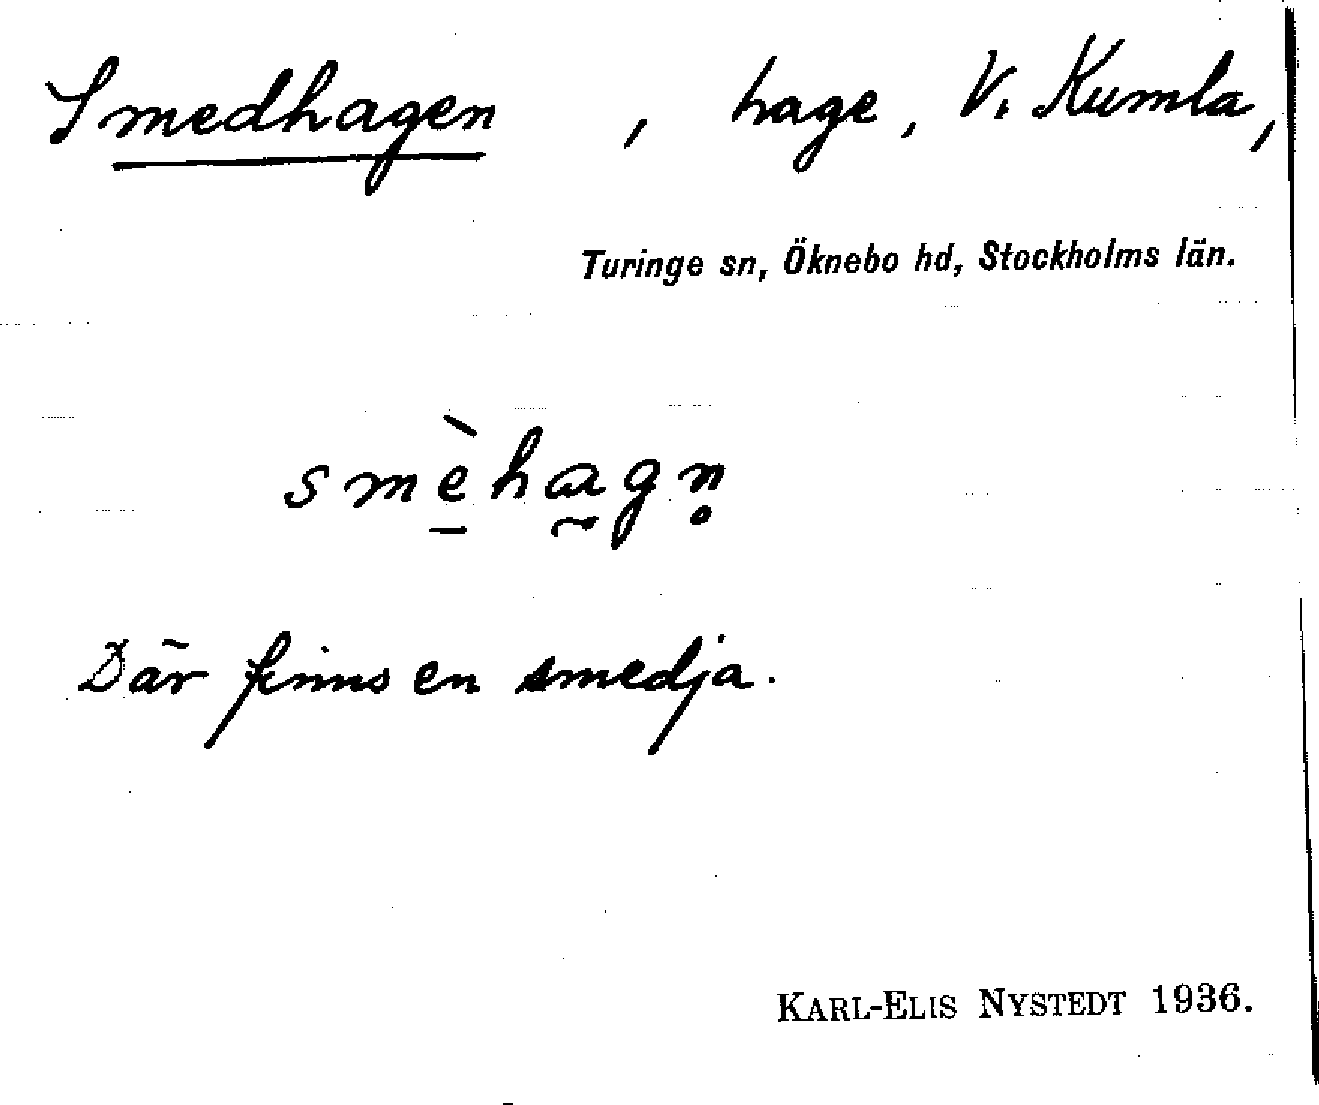 Smedhagen, hage, V. Kumla,
Turinge sn, Öknebo hd, Stockholms län.
smè̱ha̰gn̥
Där finns en smedja.
KARL-ELIS NYSTEDT 1936.